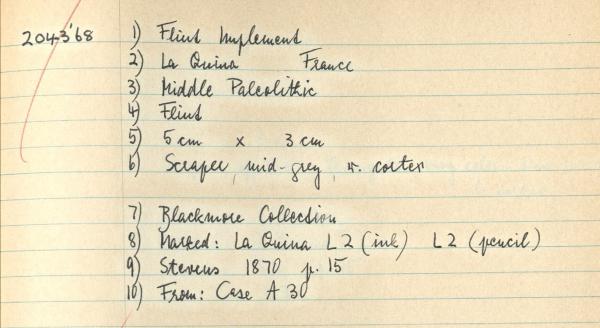 2043'68 1) Flint Implement
2) La Quina France
3) Middle Paleolithic
4) Flint
5) 5 cm x 3 cm
6) Scraper, mid-grey, w. cortex
7) Blackmore Collection
8) Marked: La Quina L2 (ink) L2 (pencil)
9) Stevens 1870 p. 15
10) From: Case A 30